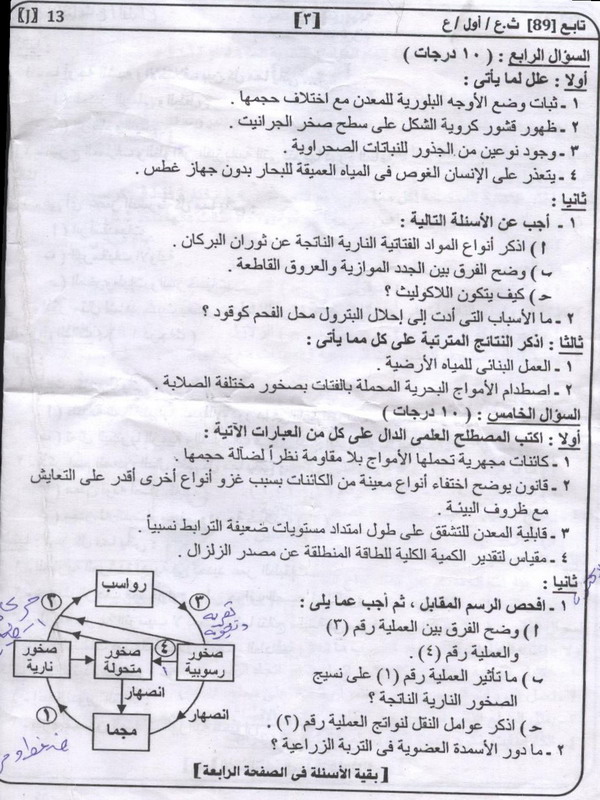 تابع [89] ث.ع / أول / ع [٣] 13 [ﺃ]
السؤال الرابع : ( ١٠ درجات )
أولا : علل لما يأتى :
١ ـ ثبات وضع الأوجه البلورية للمعدن مع اختلاف حجمها .
٢ ـ ظهور قشور كروية الشكل على سطح صخر الجرانيت .
٣ ـ وجود نوعين من الجذور للنباتات الصحراوية .
٤ ـ يتعذر على الإنسان الغوص فى المياه العميقة للبحار بدون جهاز غطس .
ثانيا :
١ ـ أجب عن الأسئلة التالية :
أ ) اذكر أنواع المواد الفتاتية النارية الناتجة عن ثوران البركان .
ب) وضح الفرق بين الجدد الموازية والعروق القاطعة .
حـ) كيف يتكون اللاكوليث ؟
٢ ـ ما الأسباب التى أدت إلى إحلال البترول محل الفحم كوقود ؟
ثالثا : اذكر النتائج المترتبة على كل مما يأتى :
١ ـ العمل البنائى للمياه الأرضية .
٢ ـ اصطدام الأمواج البحرية المحملة بالفتات بصخور مختلفة الصلابة .
السؤال الخامس : ( ١٠ درجات )
أولا : اكتب المصطلح العلمى الدال على كل من العبارات الآتية :
١ ـ كائنات مجهرية تحملها الأمواج بلا مقاومة نظراً لضآلة حجمها .
٢ ـ قانون يوضح اختفاء أنواع معينة من الكائنات بسبب غزو أنواع أخرى أقدر على التعايش
مع ظروف البيئة .
٣ ـ قابلية المعدن للتشقق على طول امتداد مستويات ضعيفة الترابط نسبياً .
٤ ـ مقياس لتقدير الكمية الكلية للطاقة المنطلقة عن مصدر الزلزال .
ثانيا :
١ ـ افحص الرسم المقابل ، ثم أجب عما يلى :
أ ) وضح الفرق بين العملية رقم (٣)
والعملية رقم (٤) .
ب) ما تأثير العملية رقم (١) على نسيج
الصخور النارية الناتجة ؟
حـ) اذكر عوامل النقل لنواتج العملية رقم (٢) .
٢ ـ ما دور الأسمدة العضوية فى التربة الزراعية ؟
رواسب
٣
٢
٤
صخور
رسوبية
صخور
متحولة
صخور
نارية
انصهار
انصهار
١
مجما
[بقية الأسئلة فى الصفحة الرابعة]